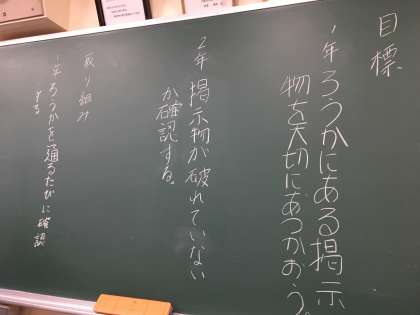 目標
1年 ろうかにある掲示
物を大切にあつかおう。
2年 掲示物が破れていない
か確認する。
取り組み
1年 ろうかを通るたびに確認
する